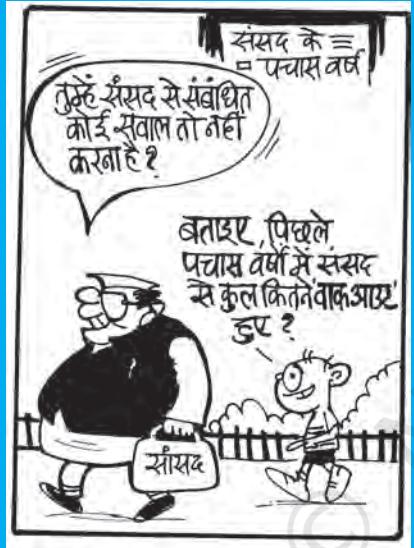 संसद के
पचास वर्ष
तुम्हें संसद से संबंधित
कोई सवाल तो नहीं
करना है?
बताइए, पिछले
पचास वर्षों में संसद
से कुल कितने 'वाकआउट'
हुए ?
सांसद